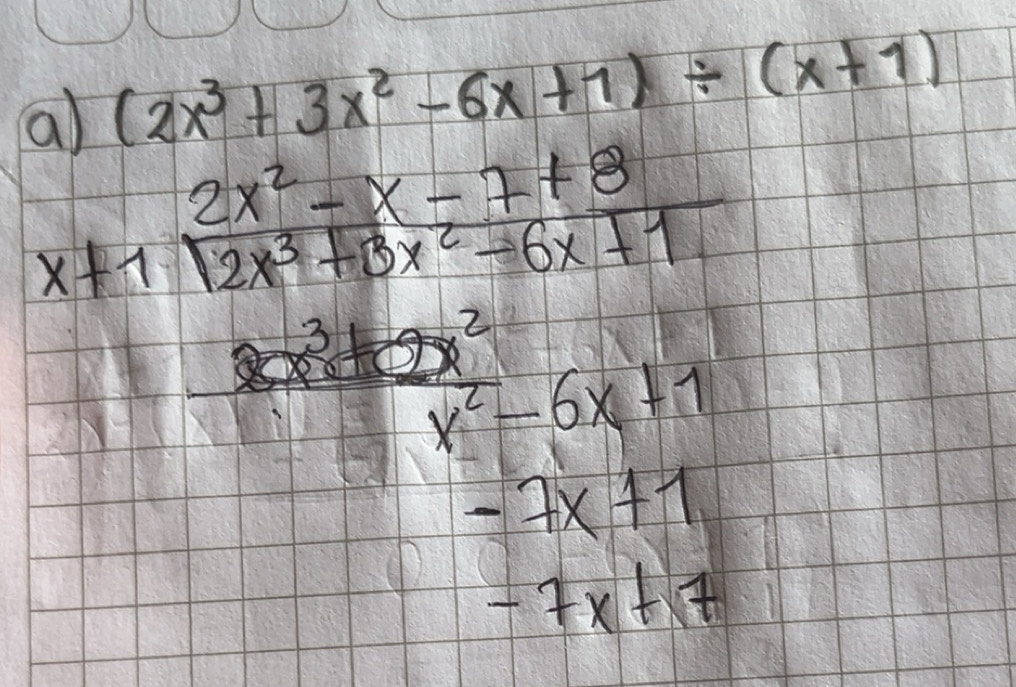 a) (2x³ + 3x² - 6x + 1) ÷ (x + 1)
2x² - x - 7 + 8
x + 1 2x³ + 3x² - 6x + 1
2x³ + 2x²
x² - 6x + 1
- 7x + 1
- 7x + 7